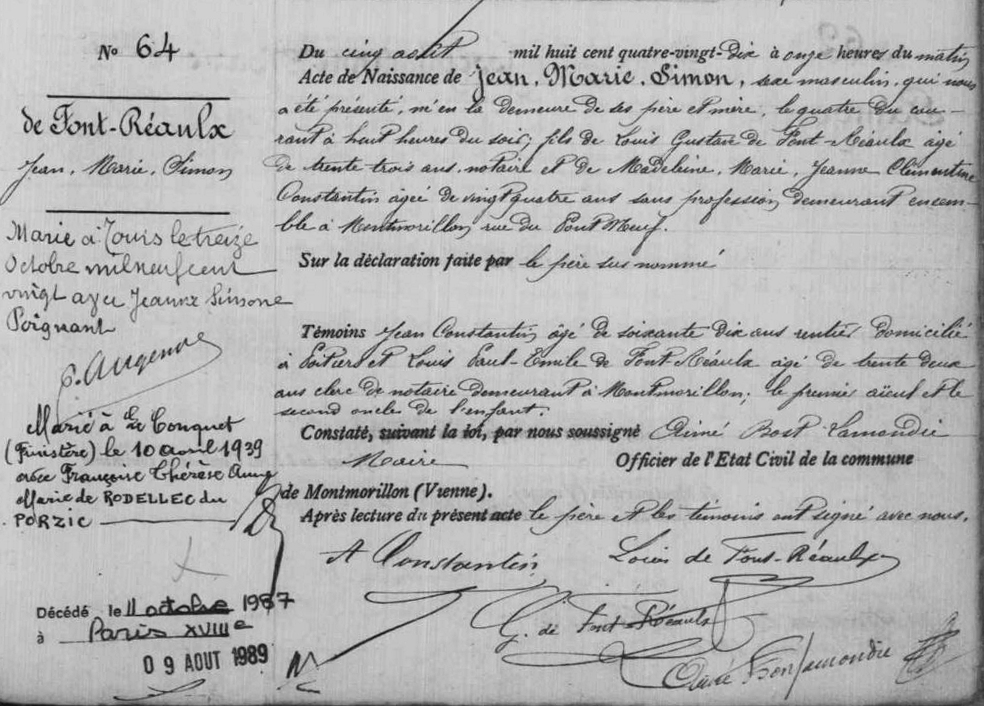 No 64
de Font-Réaulx
Jean, Marie, Simon
Marié à Tours le treize
Octobre mil neuf cent
vingt avec Jeanne Simone
Poignant
Marié à Le Conquet
(Finistère) le 10 avril 1939
avec Françoise Thérèse Anne
Marie de RODELLEC du
PORZIC
Décédé le 11 octobre 1987
à Paris XVIIIe
09 AOUT 1989
Du cinq août mil huit cent quatre-vingt-dix à onze heures du matin
Acte de Naissance de Jean, Marie, Simon, sexe masculin, qui nous
a été présenté, en la demeure de ses père et mère, le quatre du cou-
rant à huit heures du soir; fils de Louis Gustave de Font-Réaulx âgé
de trente trois ans, notaire et de Madeleine, Marie, Jeanne Clémentine
Constantin âgée de vingt quatre ans sans profession demeurant ensem-
ble à Montmorillon, rue du Pont Neuf.
Sur la déclaration faite par le père sus nommé
Témoins Jean Constantin, âgé de soixante dix ans rentier domicilié
à Poitiers et Louis Paul-Emile de Font-Réaulx âgé de trente deux
ans clerc de notaire demeurant à Montmorillon; le premier aïeul et le
second oncle de l'enfant.
Constaté, suivant la loi, par nous soussigné Aimé Bost Lamondie
Maire Officier de l'Etat Civil de la commune
de Montmorillon (Vienne).
Après lecture du présent acte le père et les témoins ont signé avec nous.
A Constantin Louis de Font-Réaulx
G. de Font-Réaulx